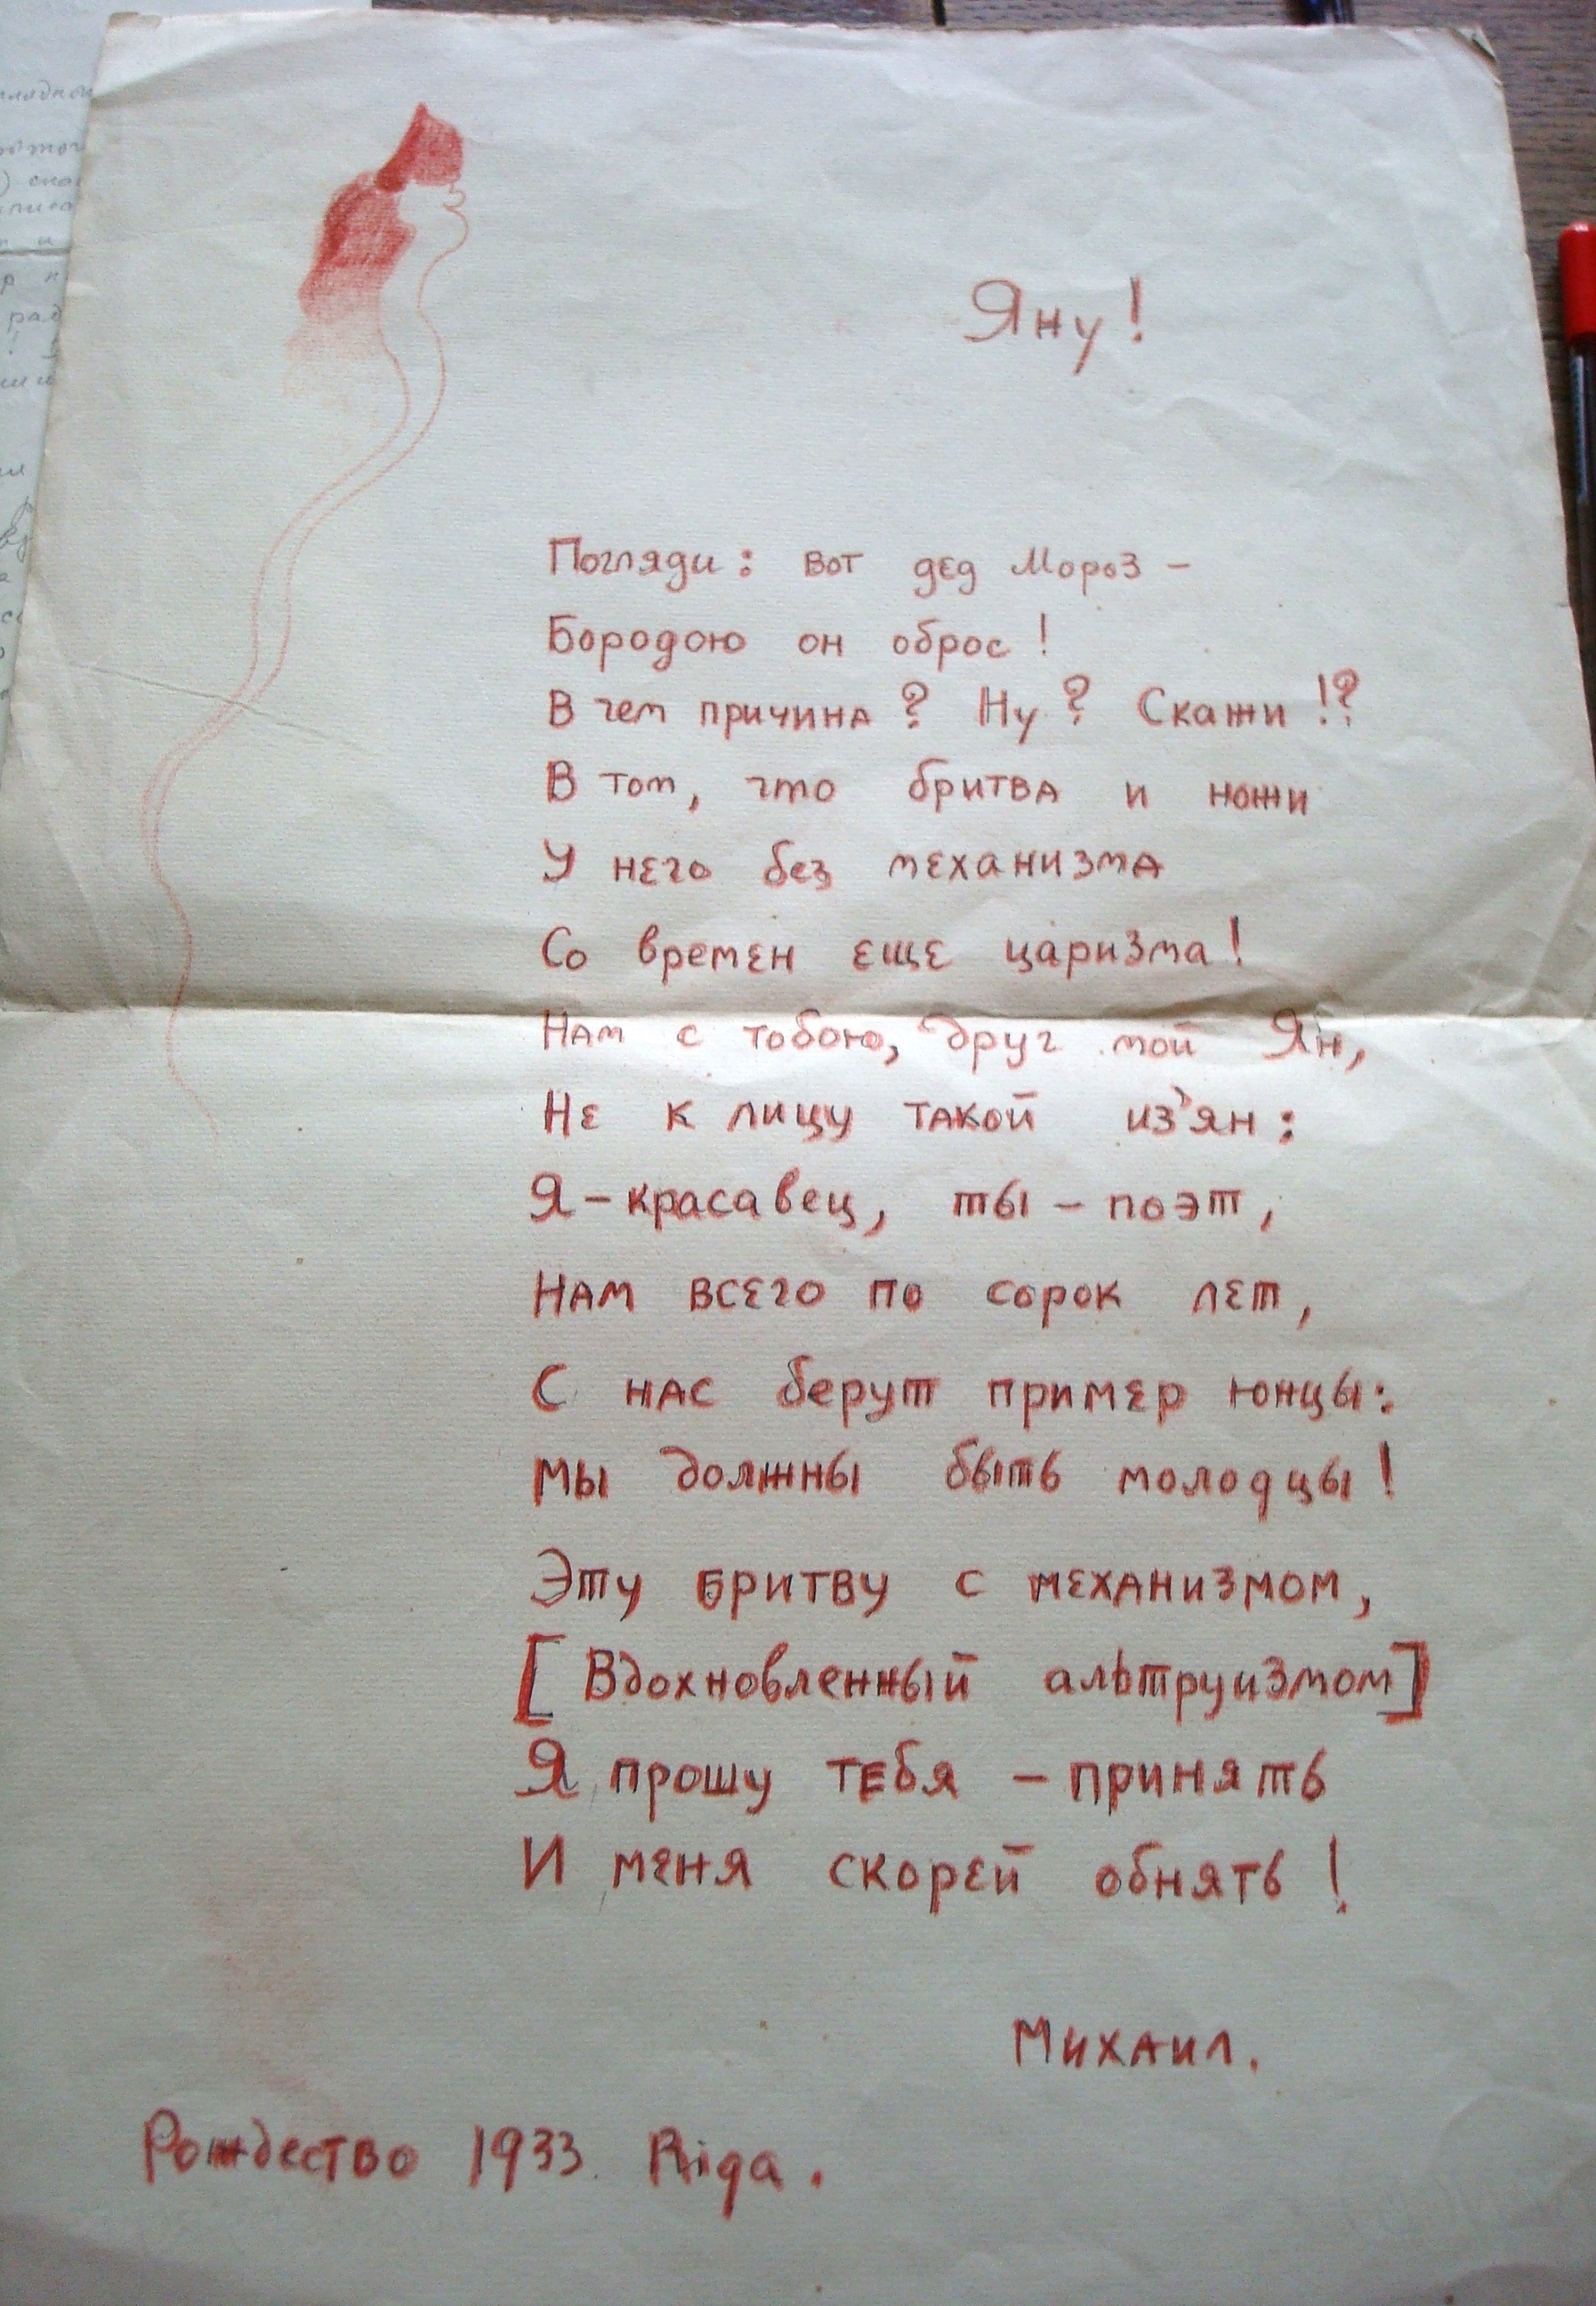 Яну!
Погляди: вот дед Мороз –
Бородою он оброс!
В чем причина? Ну? Скажи!?
В том, что бритва и ножи
У него без механизма
Со времен еще царизма!
Нам с тобою, друг мой Ян,
Не к лицу такой из'ян:
Я – красавец, ты – поэт,
Нам всего по сорок лет,
С нас берут пример юнцы:
Мы должны быть молодцы!
Эту бритву с механизмом,
[Вдохновленный альтруизмом]
Я прошу тебя – принять
И меня скорей обнять!
Михаил.
Рождество 1933. Riga.